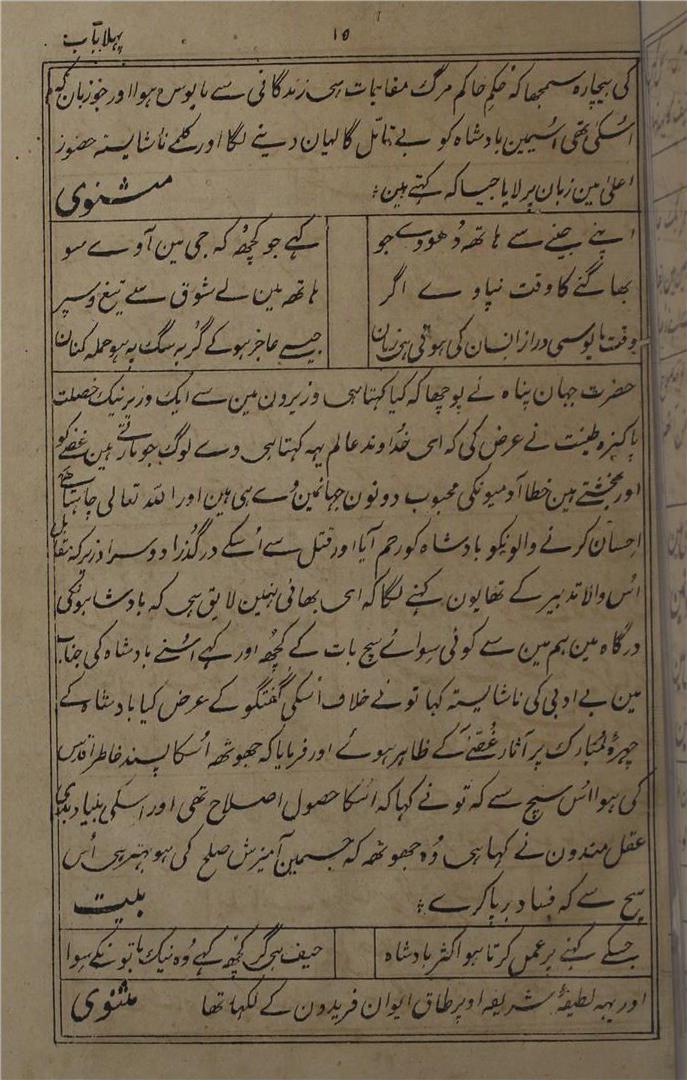 پہلا باب ۱۵
کی بیچارہ سمجھا کہ حکم حاکم مرگ مفاجات ہی زندگانی سے مایوس ہوا اور جو زبان کہ
اُسکی تھی اُسمین بادشاہ کو بے تامل گالیان دینے لگا اور کلمے ناشایستہ حضور
اعلیٰ مین زبان پر لایا جیسا کہ کہتے ہین؛ مثنوی
اپنے جینے سے ہاتھ دھووے جو کہے جو کچھ کہ جی مین آوے سو
بھاگنے کا وقت نپاوے اگر ہاتھ مین لے شوق سے تیغ و سپر
وقت مایوسی دراز انسان کی ہوتی ہی زبان جیسے عاجز ہو کے گربہ سگ پہ ہو حملہ کنان
حضرت جہان پناہ نے پوچھا کہ کیا کہتا ہی وزیرون مین سے ایک وزیر نیک خصلت
پاکیزہ طینت نے عرض کی کہ ای خداوند عالم یہہ کہتا ہی وے لوگ جو مارتے ہین غصے کو
اور بخشتے ہین خطا آدمیونکی محبوب دونون جہانمین وے ہی ہین اور اللہ تعالی چاہتا ہے
احسان کرنے والونکو بادشاہ کو رحم آیا اور قتل سے اُسکے درگذرا دوسرا وزیر کہ مقابل
اُس والا تدبیر کے تھا یون کہنے لگا کہ ای بھائی نہین لایق ہی کہ بادشاہونکی
درگاہ مین ہم مین سے کوئی سواے سچ بات کے کچھ اور کہے اُسنے بادشاہ کی جناب
مین بے ادبی کی ناشایستہ کہا تو نے خلاف اُسکی گفتگو کے عرض کیا بادشاہ کے
چہرۂ مبارک پر آثار غصّے کے ظاہر ہوئے اور فرمایا کہ جھوٹھ اُسکا پسند خاطر اقدس
کی ہوا اُس سچ سے کہ تو نے کہا کہ اُسکا حصول اصلاح تھی اور اسکی بنیاد بدی
عقل مندون نے کہا ہی وُہ جھوٹھ کہ جسمین آمیزش صلح کی ہو بہتر ہی اُس
سچ سے کہ فساد برپا کرے؛ بیت
جسکے کہنے پر عمل کرتا ہو اکثر بادشاہ حیف ہی گر کچھ کہے وُہ نیک باتونکے سوا
اور یہہ لطیفۂ شریفہ اوپر طاق ایوان فریدون کے لکھا تھا مثنوی